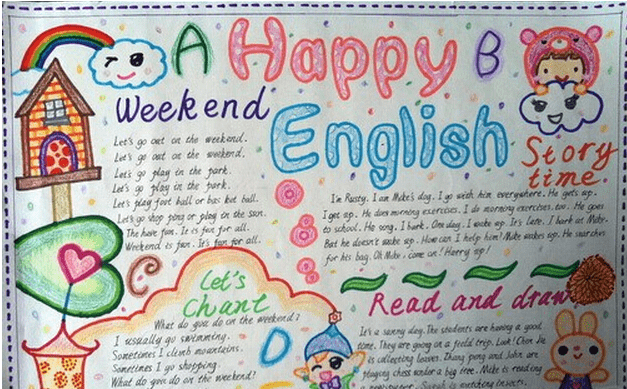 A Happy B
Weekend
English
Let's go out on the weekend.
Let's go out on the weekend.
Let's go play in the park.
Let's go play in the park.
Let's play foot ball or bas ket ball.
Let's go shop ping or play in the sun.
The have fun. It is fun for all.
Weekend is fun. It's fun for all.
Story
time.
I'm Rusty. I am Mike's dog. I go with him everywhere. He gets up.
I get up. He does morning exercises. I do morning exercises, too. He goes
to school. He song. I bark. One day. I wake up. It's late. I bark at Mike.
But he doesn't wake up. How can I help him! Mike wakes up. He searches
for his bag. Oh Mike, come on! Harry up!
C
Let's
Chant
What do you do on the weekend?
I usually go swimming.
Sometimes I climb mountains.
Sometimes I go shopping.
What do you do on the weekend?
D
Read and draw
It's a sunny day. The students are having a good
time. They are going on a field trip. Look! Chen Jie
is collecting leaves. Zhang peng and John are
playing chess under a big tree. Mike is reading
a newspaper. Sarah is